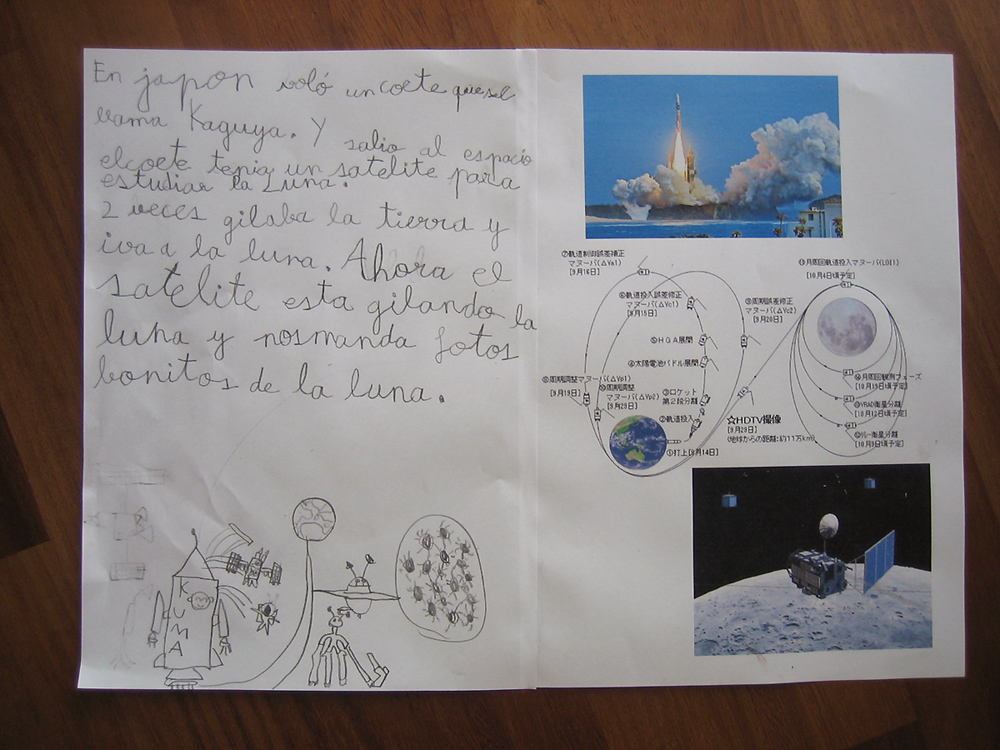 En japon voló un coete que sel
llama Kaguya. Y salio al espacio
el coete tenia un satelite para
estudiar la Luna.
2 veces gilaba la tierra y
iva a la luna. Ahora el
satelite esta gilando la
luna y nos manda fotos
bonitos de la luna.
KUMA
⑦軌道制御誤差補正
マヌーバ(△Va1)
[9月16日]
⑥軌道投入誤差修正
マヌーバ(△Vc1)
[9月15日]
⑤HGA展開
④太陽電池パドル展開
③ロケット
第2段分離
②軌道投入
①打上[9月14日]
⑧周期調整マヌーバ(△Vp1)
[9月19日]
⑩周期調整
マヌーバ(△Vp2)
[9月29日]
⑨周期誤差修正
マヌーバ(△Vc2)
[9月20日]
☆HDTV撮像
[9月29日]
(地球からの距離:約11万km)
⑪月周回軌道投入マヌーバ(LOI1)
[10月4日頃予定]
⑭月周回観測フェーズ
[10月19日頃予定]
⑬VRAD衛星分離
[10月12日頃予定]
⑫リレー衛星分離
[10月9日頃予定]